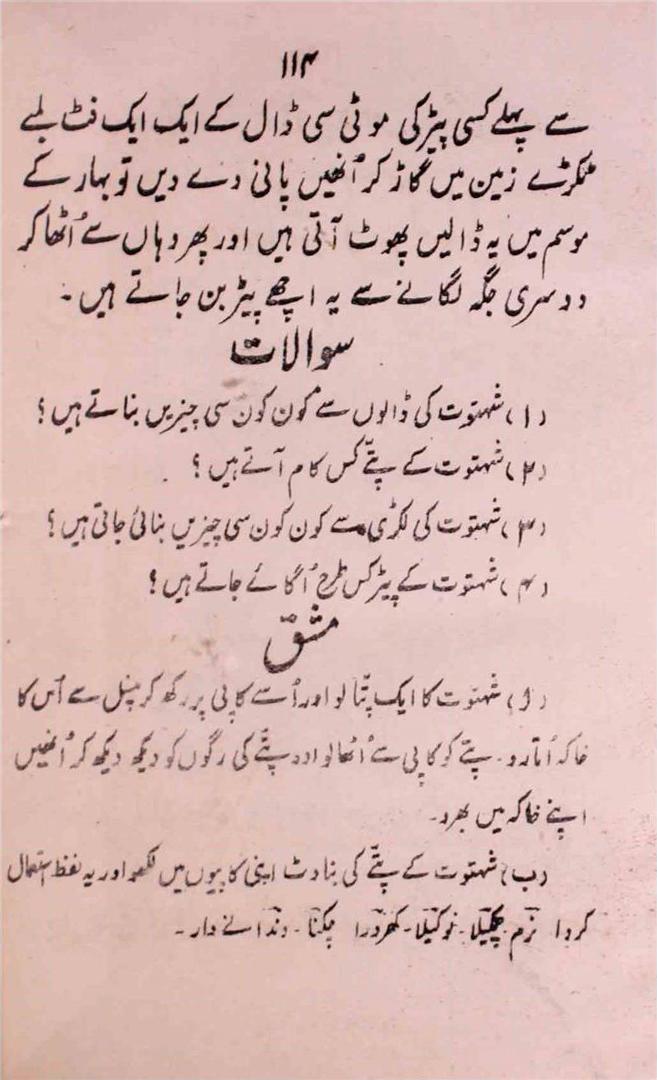 ۱۱۴
سے پہلے کسی پیڑ کی موٹی سی ڈال کے ایک ایک فٹ لمبے
ٹکڑے زمین میں گاڑ کر اُنھیں پانی دے دیں تو بہار کے
موسم میں یہ ڈالیں پھوٹ آتی ہیں اور پھر وہاں سے اُٹھا کر
دوسری جگہ لگانے سے یہ اچھے پیڑ بن جاتے ہیں۔
سوالات
(۱) شہتوت کی ڈالوں سے کون کون سی چیزیں بناتے ہیں؟
(۲) شہتوت کے پتّے کس کام آتے ہیں؟
(۳) شہتوت کی لکڑی سے کون کون سی چیزیں بنائی جاتی ہیں؟
(۴) شہتوت کے پیڑ کس طرح اُگائے جاتے ہیں؟
مشق
(ا) شہتوت کا ایک پتّا لو اور اُسے کاپی پر رکھ کر پنسل سے اُس کا
خاکہ اُتارو۔ پتّے کو کاپی سے اُٹھا لو اور پتّے کی رگوں کو دیکھ دیکھ کر اُنھیں
اپنے خاکہ میں بھرو۔
(ب) شہتوت کے پتّے کی بناوٹ اپنی کاپیوں میں لکھو اور یہ لفظ استعمال
کرو۔ نرم۔ چمکیلا۔ نوکیلا۔ کھردرا چکنا۔ دندانے دار۔